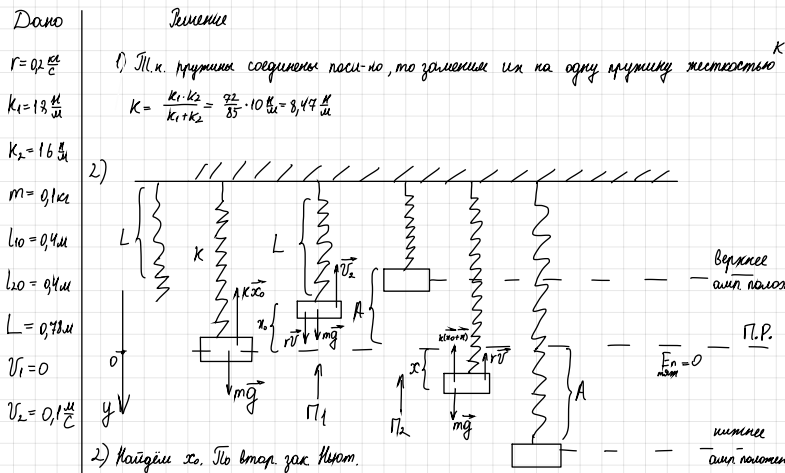 Дано
Решение
r = 0,2 кг/с
k₁ = 18 Н/м
k₂ = 16 Н/м
m = 0,1 кг
l₁₀ = 0,4 м
l₂₀ = 0,4 м
L = 0,78 м
V₁ = 0
V₂ = 0,1 м/с
1) Т.к. пружины соединены посл-но, то заменим их на одну пружину жесткостью K
K = k₁·k₂/k₁+k₂ = 72/85 · 10 Н/м = 8,47 Н/м
2)
L
K
L
V₂
kx₀
x₀
A
rV
mg
mg
k(x₀+x)
rV
x
mg
A
0
y
П₁
П₂
верхнее
амп полож
П.Р.
Eп = 0
тяж
нижнее
амп положен
2) Найдём x₀. По втор. зак Ньют.